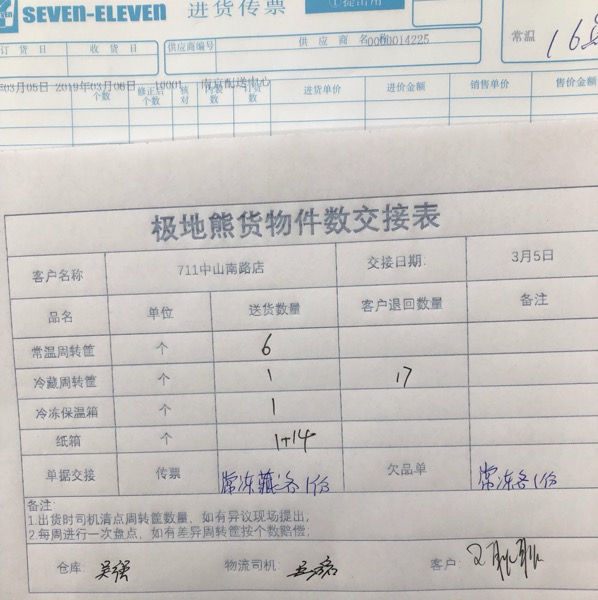 SEVEN-ELEVEN 进货传票 ①提出用
订货日 收货日 供应商编号 供应商名称 0000014225 常温
年03月05日 2019年03月06日 10001 南京配送中心
个数 修正后个数 核对 内装数 订货数 进货单价 进价金额 销售单价 售价金额
极地熊货物件数交接表
客户名称 711中山南路店 交接日期: 3月5日
品名 单位 送货数量 客户退回数量 备注
常温周转筐 个 6
冷藏周转筐 个 1 17
冷冻保温箱 个 1
纸箱 个 1+14
单据交接 传票 常冻藏各1份 欠品单 常冻各1份
备注:
1.出货时司机清点周转筐数量，如有异议现场提出;
2.每周进行一次盘点，如有差异周转筐按个数赔偿;
仓库: 吴强 物流司机: 客户: